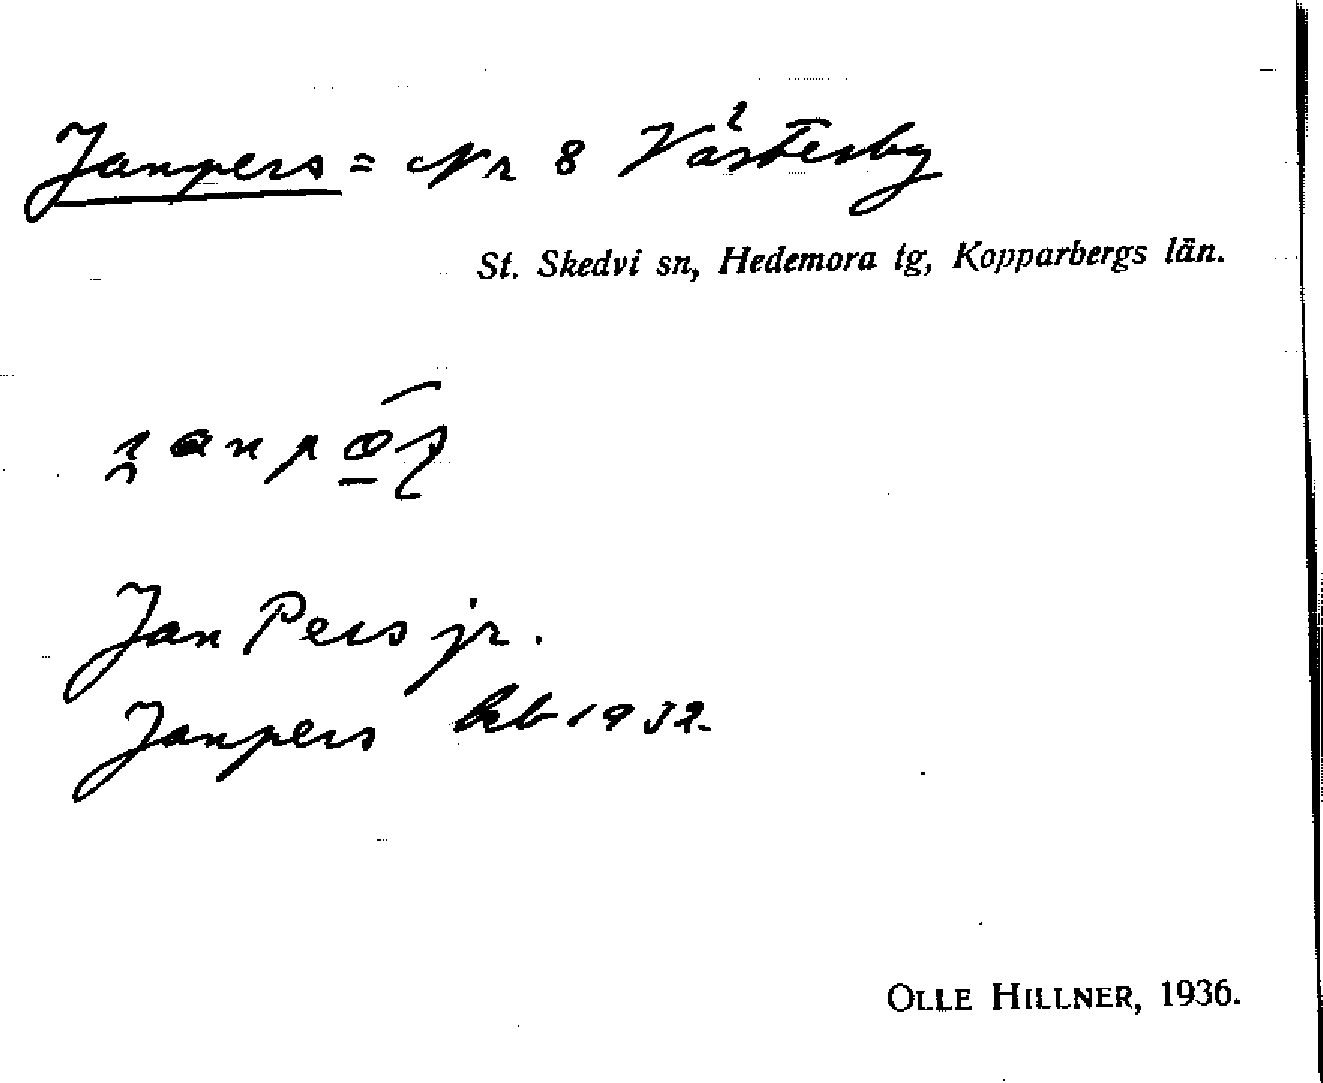 Janpers = Nr 8 Västerby
St. Skedvi sn, Hedemora tg, Kopparbergs län.
Jan Pers jr.
Janpers kb 1932.
OLLE HILLNER, 1936.